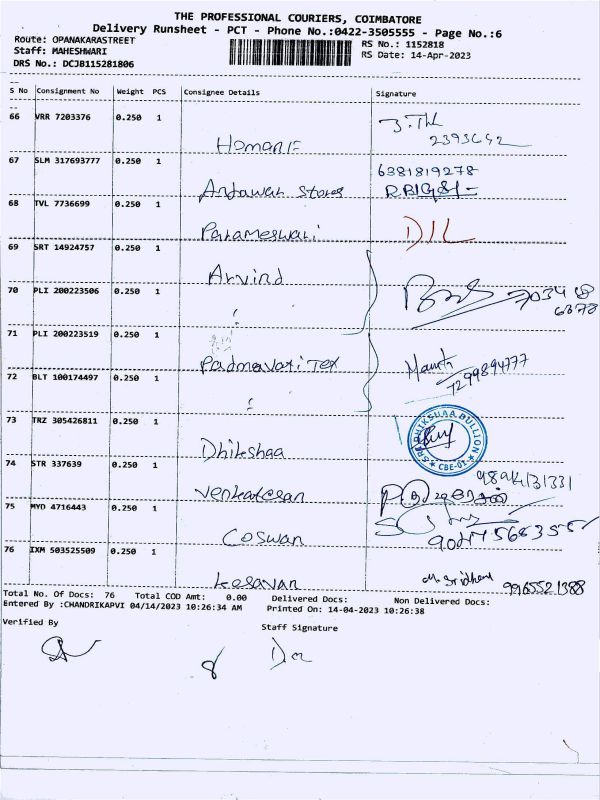 THE PROFESSIONAL COURIERS, COIMBATORE
Delivery Runsheet - PCT - Phone No.:0422-3505555 - Page No.:6
Route: OPANAKARASTREET
RS No.: 1152818
Staff: MAHESHWARI
RS Date: 14-Apr-2023
DRS No.: DCJB115281806
S No Consignment No Weight PCS Consignee Details Signature
66 VRR 7203376 0.250 1
67 SLM 317693777 0.250 1
6381819278
Stores
68 TVL 7736699 0.250 1
Parameswari
69 SRT 14924757 0.250 1
Arvind
70 PLI 200223506 0.250 1
71 PLI 200223519 0.250 1
Padmavati Tex
7299894777
72 BLT 100174497 0.250 1
73 TRZ 305426811 0.250 1
SRI DHIKSHAA BULLION
CBE-01
Dhikshaa
74 STR 337639 0.250 1
Venkatesan
75 MYD 4716443 0.250 1
Coswan
76 IXM 503525509 0.250 1
Kesavan
M. Sridhar 9965521388
Total No. Of Docs: 76 Total COD Amt: 0.00 Delivered Docs: Non Delivered Docs:
Entered By :CHANDRIKAPVI 04/14/2023 10:26:34 AM Printed On: 14-04-2023 10:26:38
Verified By
Staff Signature